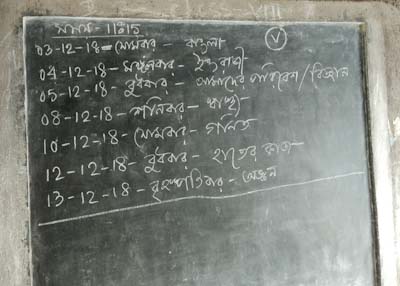 সময় - 11:15
Ⓥ
03-12-18 - সোমবার - বাংলা
04-12-18 - মঙ্গলবার - ইংরাজী
05-12-18 - বুধবার - আমাদের পরিবেশ / বিজ্ঞান
08-12-18 - শনিবার - স্বাস্থ্য
10-12-18 - সোমবার - গণিত
12-12-18 - বুধবার - হাতের কাজ
13-12-18 - বৃহস্পতিবার - অঙ্কন